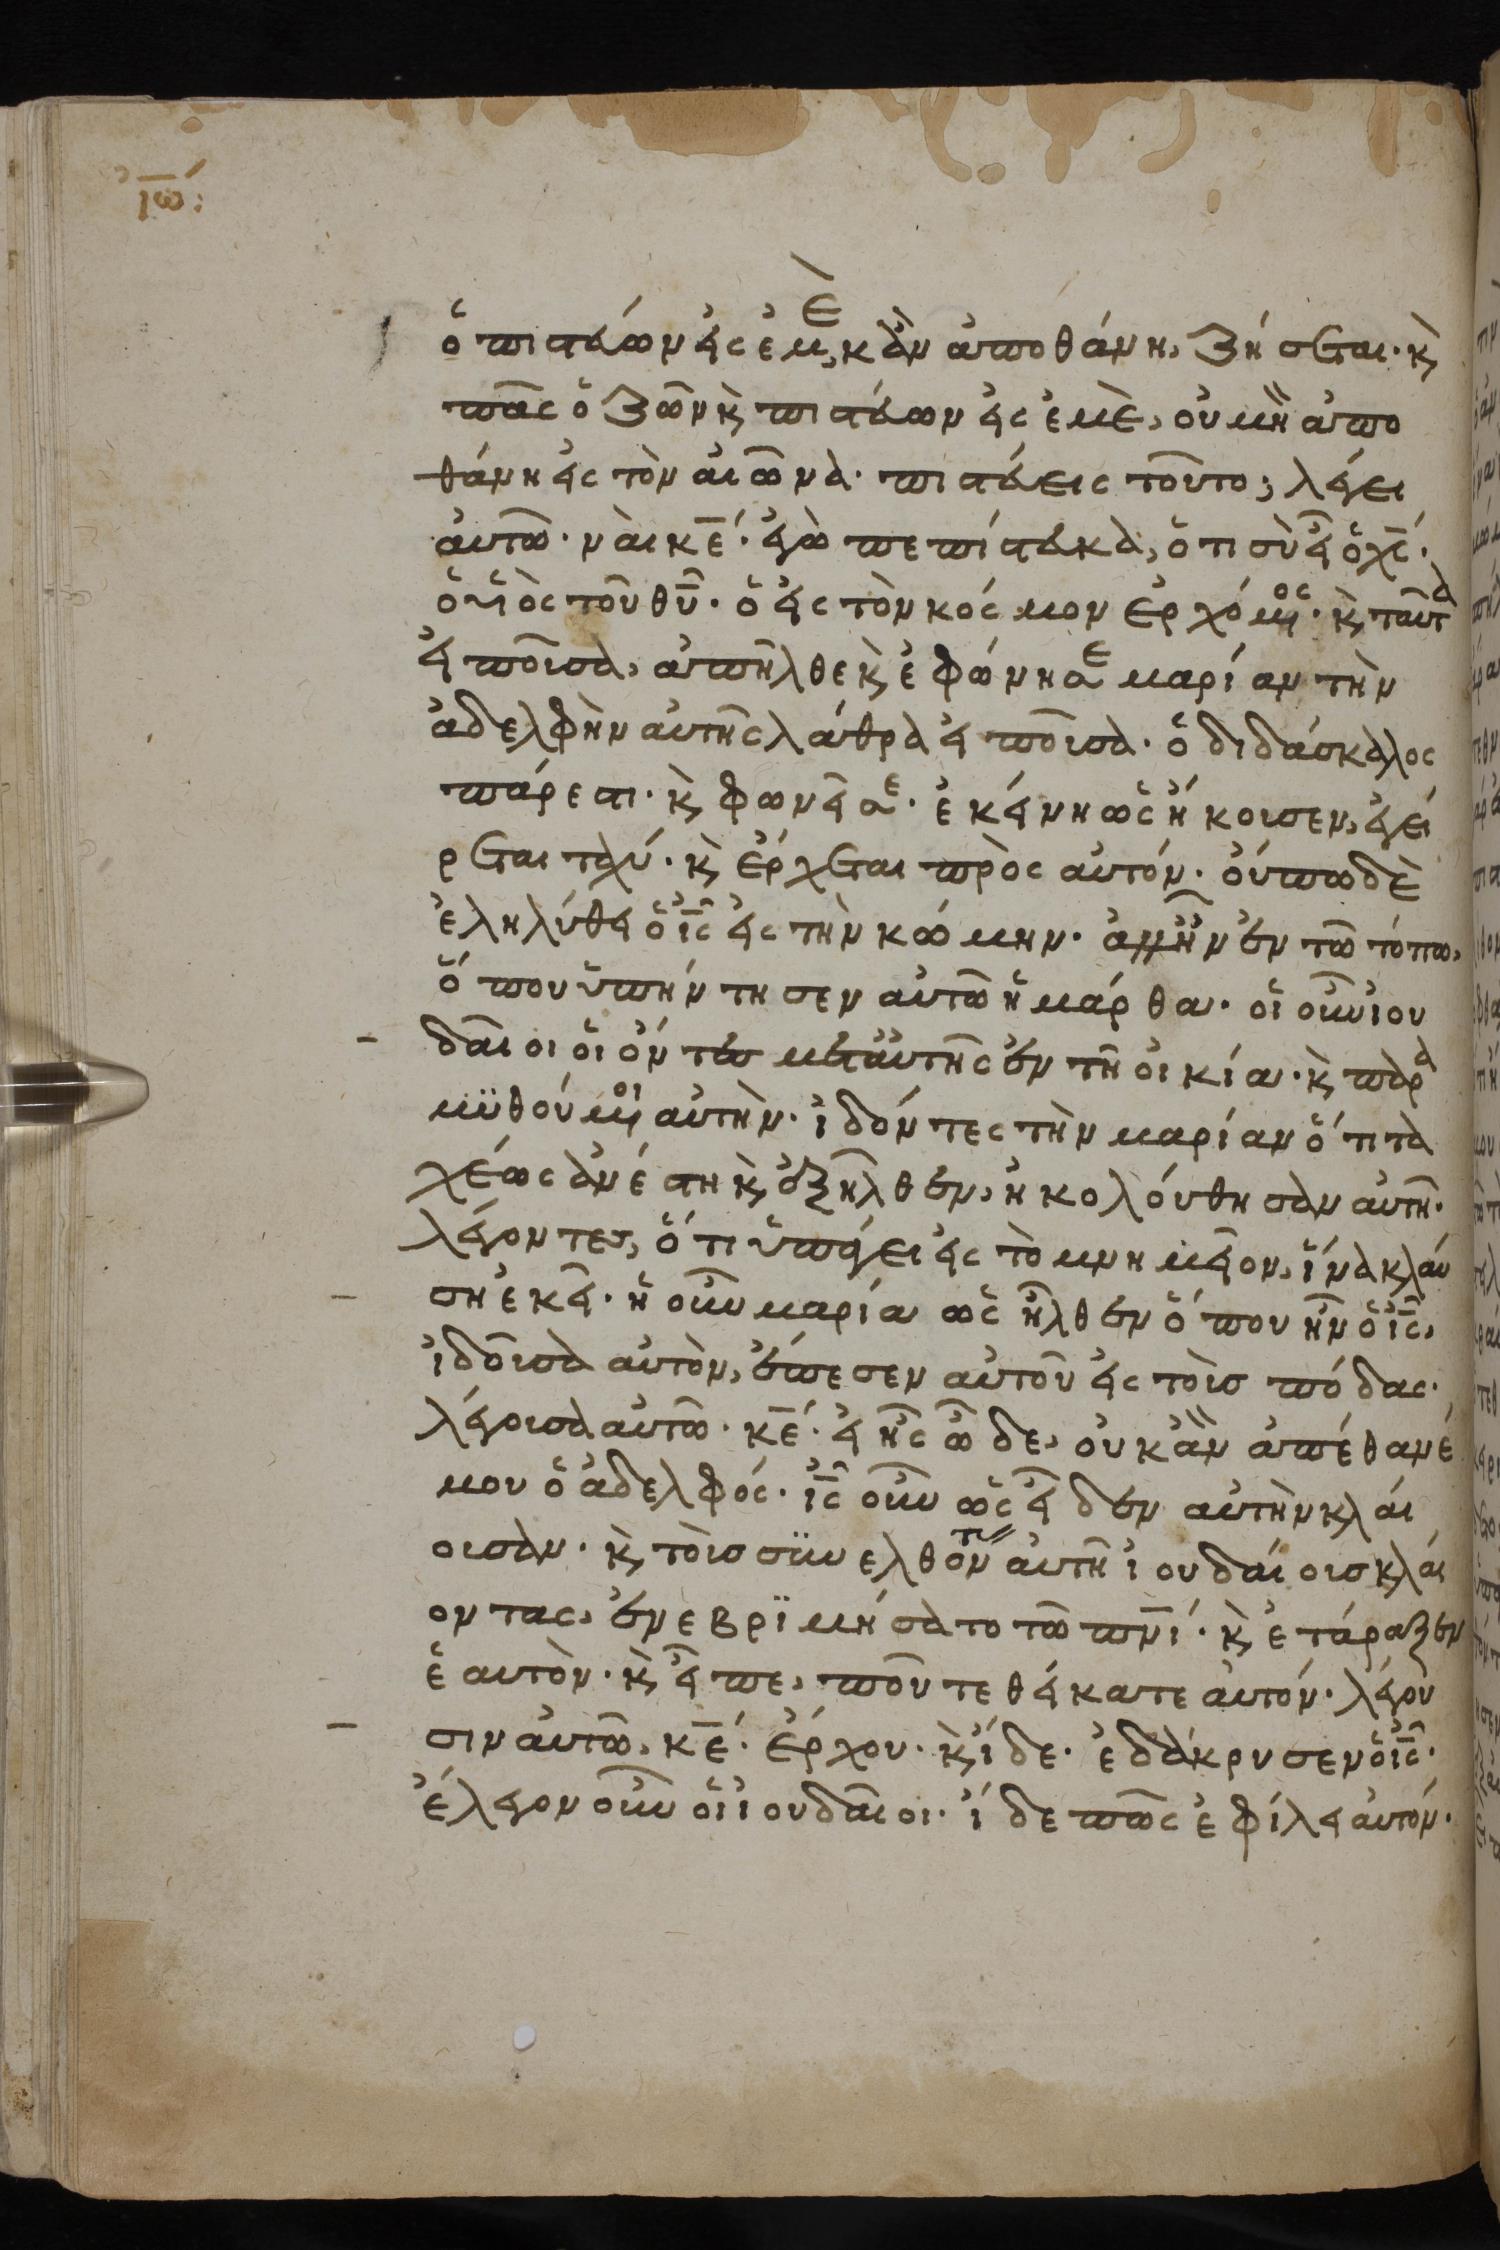 ἰω̅:
ὁ πιστεύων εἰς ἐμὲ, κἂν ἀποθάνη, ζήσεται· κ̀
πᾶς ὁ ζῶν κ̀ πιστεύων εἰς ἐμὲ, οὐ μὴ ἀπο
θάνη εἰς τὸν αἰῶνα· πιστεύεις τοῦτο; λέγει
αὐτῶ· ναὶ κ̅ε̅· ἐγὼ πεπίστευκα, ὅτι σὺ εἶ ὁ χ̅ς̅·
ὁ υἱὸς τοῦ θ̅υ̅· ὁ εἰς τὸν κόσμον ἐρχόμενος· κ̀ ταῦτα
εἰποῦσα, ἀπῆλθε κ̀ ἐφώνησε μαρίαν τὴν
ἀδελφὴν αὐτῆς λάθρα εἰποῦσα· ὁ διδάσκαλος
πάρεστι· κ̀ φωνεῖ σε· ἐκείνη ὡς ἤκουσεν, ἐγεί
ρεται ταχύ· κ̀ ἔρχεται πρὸς αὐτόν· οὔπω δὲ
ἐληλύθει ὁ ι̅ς̅ εἰς τὴν κώμην· ἀλλ' ἦν ἐν τῶ τόπω,
ὅπου ὑπήντησεν αὐτῶ ἡ μάρθα· οἱ οὖν ἰου
δαῖοι οἱ ὄντες μετ' αὐτῆς ἐν τῆ οἰκία· κ̀ παρα
μϋθούμενοι αὐτὴν· ἰδόντες τὴν μαρίαν ὅτι τα
χέως ἀνέστη κ̀ ἐξῆλθεν, ἠκολούθησαν αὐτῆ·
λέγοντες, ὅτι ὑπάγει εἰς τὸ μνημεῖον, ἵνα κλαύ
ση ἐκεῖ· ἡ οὖν μαρία ὡς ἦλθεν ὅπου ἦν ὁ ι̅ς̅,
ἰδοῦσα αὐτὸν, ἔπεσεν αὐτοῦ εἰς τοὺς πόδας·
λέγουσα αὐτῶ· κ̅ε̅· εἰ ἦς ὧδε, οὐκ ἂν ἀπέθανέ
μου ὁ ἀδελφός· ι̅ς̅ οὖν ὡς εἶδεν αὐτὴν κλαί
ουσαν· κ̀ τοὺς συνελθόντας αὐτῆ ἰουδαίους κλαί
οντας, ἐνεβρϊμήσατο τῶ π̅ν̅ι̅· κ̀ ἐτάραξεν
ἑαυτὸν· κ̀ εἶπε, ποῦ τεθείκατε αὐτόν· λέγου
σιν αὐτῶ, κ̅ε̅· ἔρχου· κ̀ ἴδε· ἐδάκρυσεν ὁ ι̅ς̅·
ἔλεγον οὖν οἱ ἰουδαῖοι· ἴδε πῶς ἐφίλει αὐτόν·